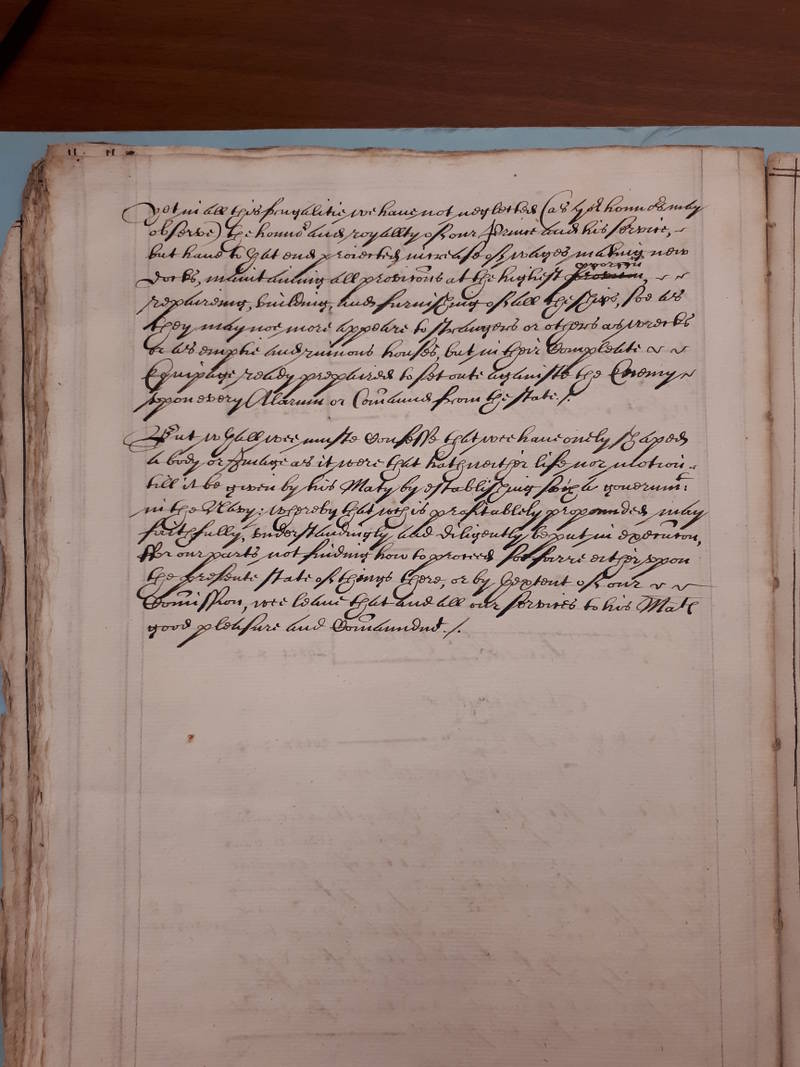 Yet in all this frugalitie we have not neglected (as yor honnors may
observe) the honnor and royallty of our Prince and his service,
but have to that end projected increase of wages making new
Docks, maintaininge all provisions at the highest proportiō
repaireing, building, and furnishing of all the ships, soe as
they may noe more appeare to strangers or others as wrecks
or as emptie and ruinous houses, but in their Compleate
Equipage ready prepaired to set oute againste the Enemy
vpon every Alarum or Comaund from the state ./.
But wthall wee muste Confesse that wee have onely shaped
a body or Image as it were that hath neither life nor motion
till it be given by his Maty by establishing such a governmt
in the Navy: whereby that wch is profitably propounded may
faithfully, vnderstandingly and diligently be put in execution,
ffor our parts not finding how to proceed soe farre either vpon
the presente state of things there, or by thextent of our
Comission, wee leave that and all our services to his Mats
good pleasure and Comaundmt ./.